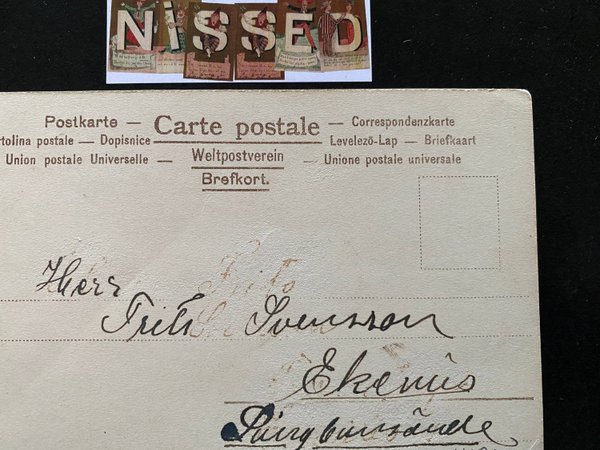 NiSSED
Postkarte — Carte postale — Correspondenzkarte
rtolina postale — Dopisnice Levelező-Lap — Briefkaart
Union postale Universelle — Weltpostverein — Unione postale universale
Brefkort.
Herr
Frits Svensson
Ekenäs